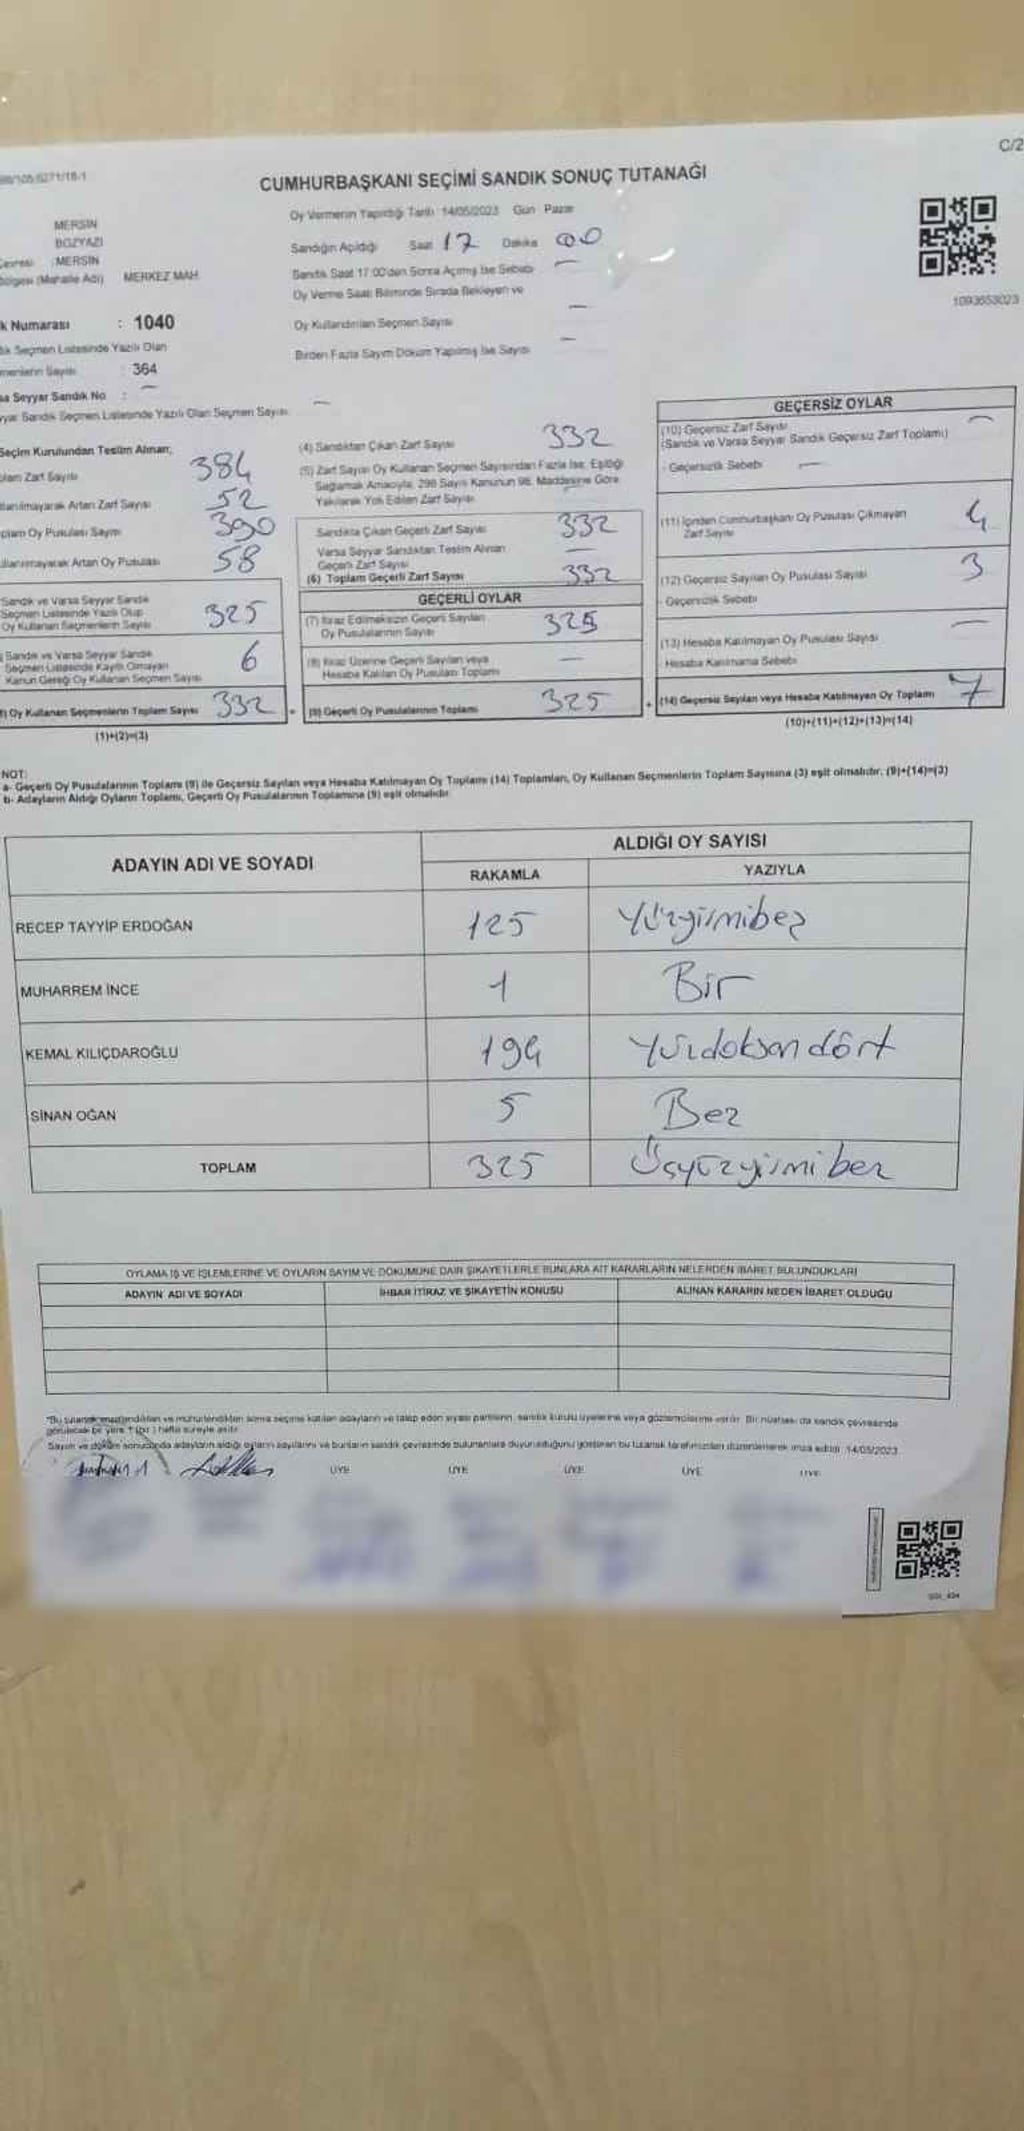 C/2
CUMHURBAŞKANI SEÇİMİ SANDIK SONUÇ TUTANAĞI
Oy Vermenin Yapıldığı Tarih 14/05/2023 Gün Pazar
MERSİN
BOZYAZI
Sandığın Açıldığı Saat 17 Dakika 00
Çevresi :MERSİN
(Mahalle Adı) MERKEZ MAH.
Sandık Saat 17:00'den Sonra Açılmış İse Sebebi —
Oy Verme Saati Bitiminde Sırada Bekleyen ve
Oy Kullandırılan Seçmen Sayısı —
1093653023
k Numarası : 1040
Birden Fazla Sayım Döküm Yapılmış İse Sayısı —
Seçmen Listesinde Yazılı Olan
Sayısı : 364
sa Seyyar Sandık No : —
yyar Sandık Seçmen Listesinde Yazılı Olan Seçmen Sayısı —
Seçim Kurulundan Teslim Alınan;
Zarf Sayısı 384
Artan Zarf Sayısı 52
Oy Pusulası Sayısı 390
Artan Oy Pusulası 58
Sandık ve Varsa Seyyar Sandık
Seçmen Listesinde Yazılı Olup
Oy Kullanan Seçmenlerin Sayısı 325
Sandık ve Varsa Seyyar Sandık
Seçmen Listesinde Kayıtlı Olmayan
Kanun Gereği Oy Kullanan Seçmen Sayısı 6
Oy Kullanan Seçmenlerin Toplam Sayısı 332
(1)+(2)=(3)
(4) Sandıktan Çıkan Zarf Sayısı 332
(5) Zarf Sayısı Oy Kullanan Seçmen Sayısından Fazla İse, Eşitliği
Sağlamak Amacıyla, 298 Sayılı Kanunun 98. Maddesine Göre
Yakılarak Yok Edilen Zarf Sayısı
Sandıkta Çıkan Geçerli Zarf Sayısı 332
Varsa Seyyar Sandıktan Teslim Alınan
Geçerli Zarf Sayısı —
(6) Toplam Geçerli Zarf Sayısı 332
GEÇERLİ OYLAR
(7) İtiraz Edilmeksizin Geçerli Sayılan
Oy Pusulalarının Sayısı 325
(8) İtiraz Üzerine Geçerli Sayılan veya
Hesaba Katılan Oy Pusulası Toplamı —
(9) Geçerli Oy Pusulalarının Toplamı 325
GEÇERSİZ OYLAR
(10) Geçersiz Zarf Sayısı —
(Sandık ve Varsa Seyyar Sandık Geçersiz Zarf Toplamı)
- Geçersizlik Sebebi —
(11) İçinden Cumhurbaşkanı Oy Pusulası Çıkmayan
Zarf Sayısı 4
(12) Geçersiz Sayılan Oy Pusulası Sayısı 3
- Geçersizlik Sebebi
(13) Hesaba Katılmayan Oy Pusulası Sayısı —
Hesaba Katılmama Sebebi
(14) Geçersiz Sayılan veya Hesaba Katılmayan Oy Toplamı 7
(10)+(11)+(12)+(13)=(14)
NOT:
a- Geçerli Oy Pusulalarının Toplamı (9) ile Geçersiz Sayılan veya Hesaba Katılmayan Oy Toplamı (14) Toplamları, Oy Kullanan Seçmenlerin Toplam Sayısına (3) eşit olmalıdır. (9)+(14)=(3)
b- Adayların Aldığı Oyların Toplamı, Geçerli Oy Pusulalarının Toplamına (9) eşit olmalıdır.
ADAYIN ADI VE SOYADI ALDIĞI OY SAYISI
RAKAMLA YAZIYLA
RECEP TAYYİP ERDOĞAN 125 Yüzyirmibeş
MUHARREM İNCE 1 Bir
KEMAL KILIÇDAROĞLU 194 Yüzdoksandört
SİNAN OĞAN 5 Beş
TOPLAM 325 Üçyüzyirmibeş
OYLAMA İŞ VE İŞLEMLERİNE VE OYLARIN SAYIM VE DÖKÜMÜNE DAİR ŞİKAYETLERLE BUNLARA AİT KARARLARIN NELERDEN İBARET BULUNDUKLARI
ADAYIN ADI VE SOYADI İHBAR İTİRAZ VE ŞİKAYETİN KONUSU ALINAN KARARIN NEDEN İBARET OLDUĞU
*Bu tutanak imzalandıktan ve mühürlendikten sonra seçime katılan adayların ve talep eden siyasi partilerin, sandık kurulu üyelerine veya gözlemcilerine verilir. Bir nüshası da sandık çevresinde
görülecek bir yere 1 (bir) hafta süreyle asılır.
Sayım ve döküm sonucunda adayların aldığı oyların sayılarını ve bunların sandık çevresinde bulunanlara duyurulduğunu gösteren bu tutanak tarafımızdan düzenlenerek imza edildi. 14/05/2023
ÜYE ÜYE ÜYE ÜYE ÜYE